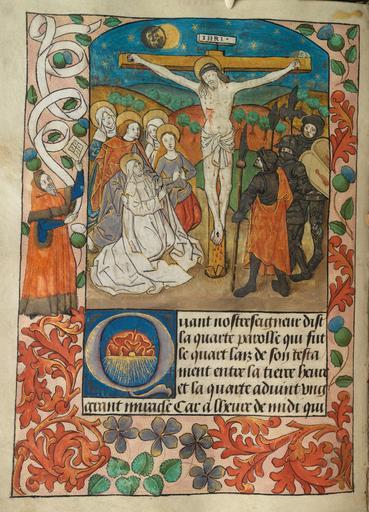 INRI
Quant nostre seigneur dist
la quarte parolle qui fut
le quart laiz de son testa
ment entre la tierce heure
et la quarte advint ung
grant miracle Car a lheure de midi qui